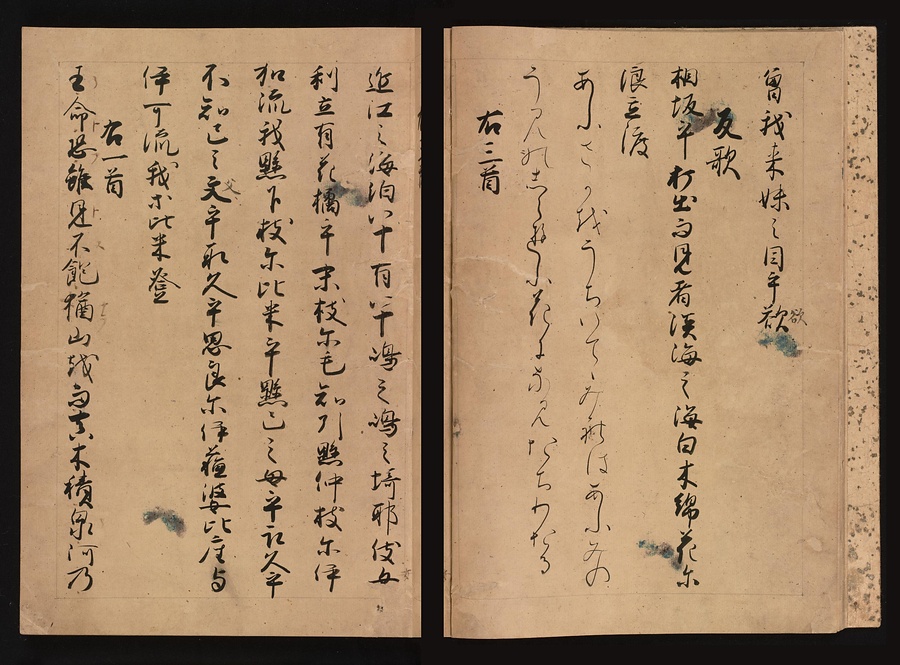 曽我来妹之目乎欲
欲
反歌
相坂乎打出而見者淡海之海白木綿花尓
浪立渡
あふさかをうちいてゝみれはあふみの
うみのしらゆふ花になみたちわたる
右三首
近江之海泊八十有八十嶋之嶋之埼耶伎安
利立有花橘乎末枝尓毛知引懸仲枝尓伊
加流我懸下枝尓比米乎懸己之母乎取久乎
不知己之父乎取久乎思良尓伊蘓婆比座与
父
伊可流我等比米登
右一首
王命恐雖見不飽楢山越而真木積泉河乃